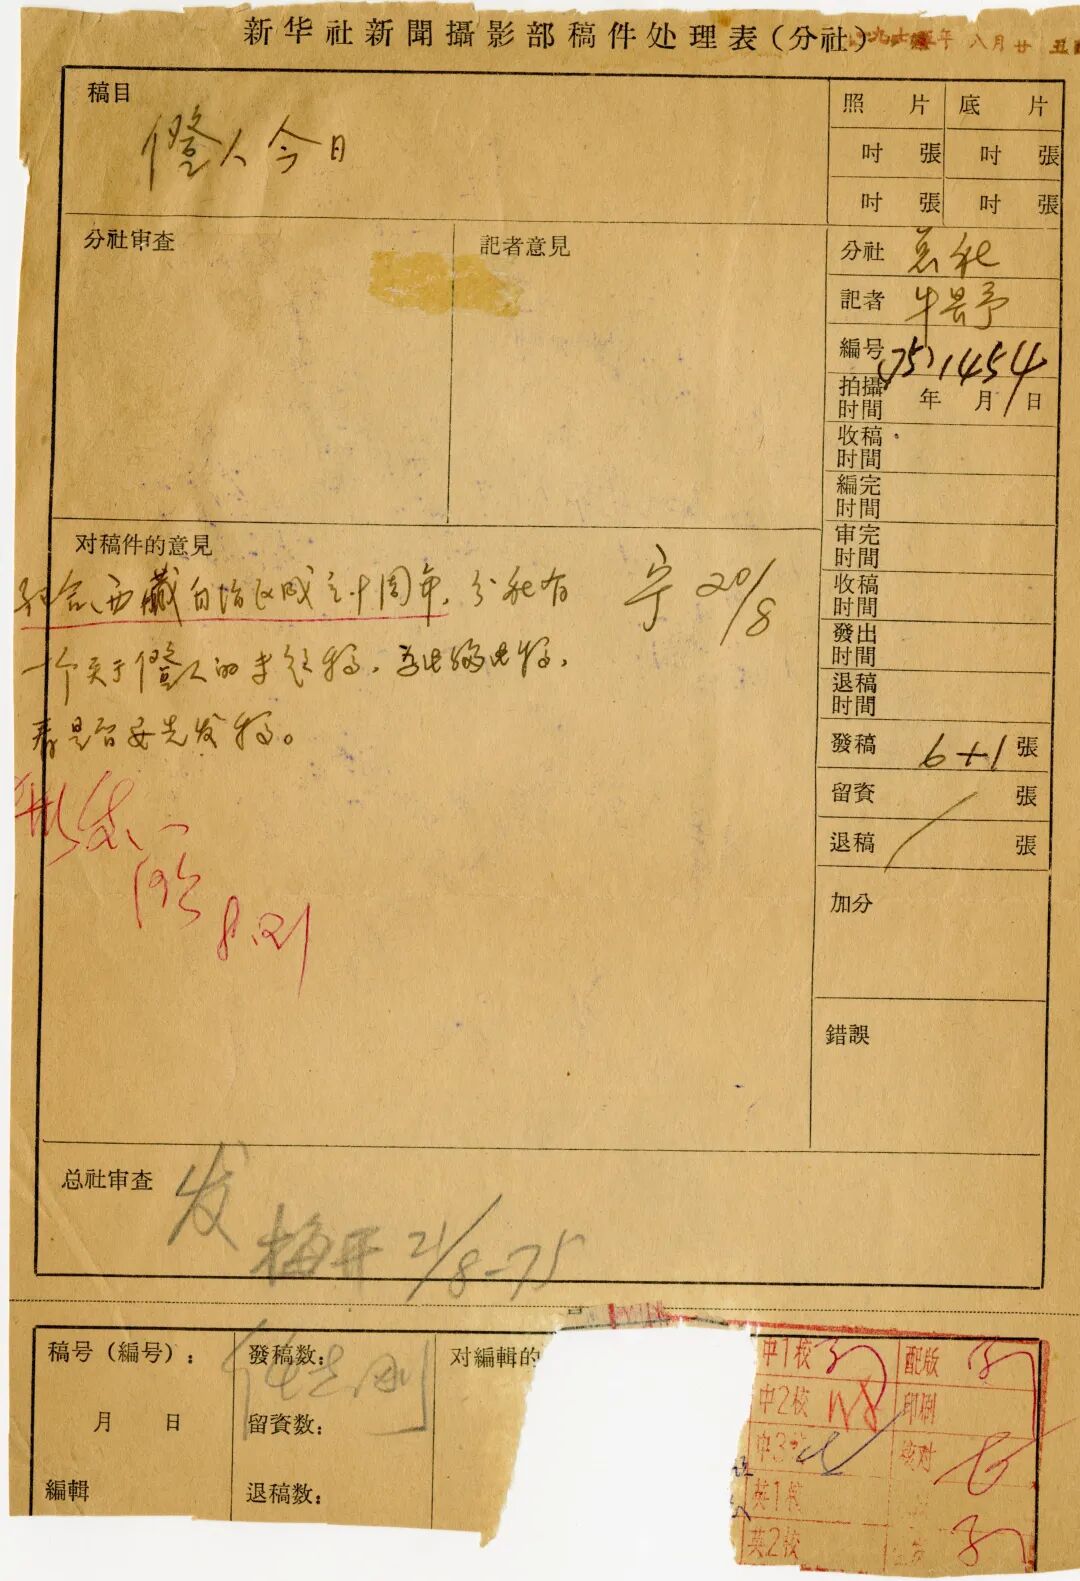 新华社新聞攝影部稿件处理表（分社）
一九七五年 八月廿
稿目
僜人今日
照片 底片
吋 張 吋 張
吋 張 吋 張
分社审查
記者意見
分社 总社
記者
編号 751454
拍攝时間 年 月 日
收稿时間
編完时間
审完时間
收稿时間
發出时間
退稿时間
發稿 6+1 張
留資 張
退稿 張
加分
錯誤
对稿件的意見
配合西藏自治区成立十周年，分社有
一个关于僜人的专题稿，
看是否要先发稿。
20/8
8.21
总社审查
发
梅开 21/8-75
稿号（編号）：
月 日
編輯
發稿数：
留資数：
退稿数：
对編輯的
中1校 配版
中2校 印刷
中3校 核对
英1校
英2校